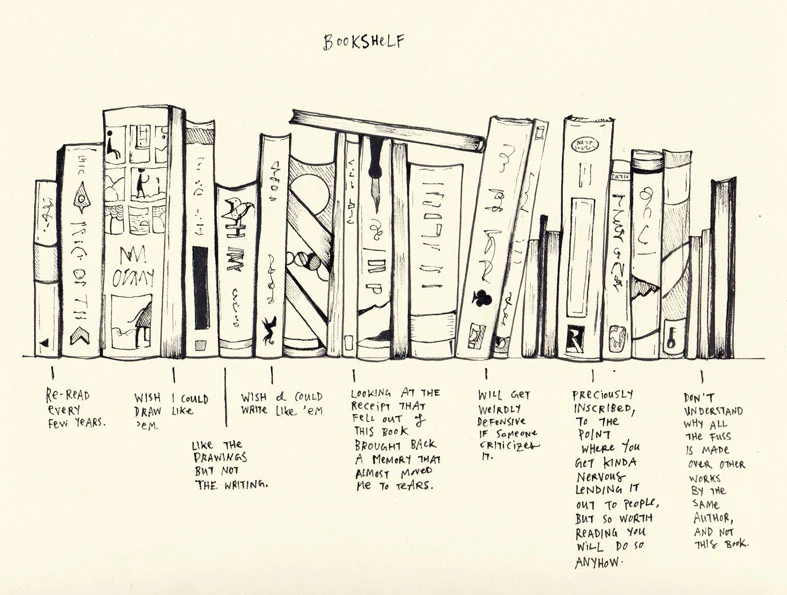 BOOKSHELF
RE-READ
EVERY
FEW YEARS.
WISH I COULD
DRAW LIKE
'EM.
LIKE THE
DRAWINGS
BUT NOT
THE WRITING.
WISH I COULD
WRITE LIKE 'EM
LOOKING AT THE
RECEIPT THAT
FELL OUT OF
THIS BOOK
BROUGHT BACK
A MEMORY THAT
ALMOST MOVED
ME TO TEARS.
WILL GET
WEIRDLY
DEFENSIVE
IF SOMEONE
CRITICIZES
IT.
PRECIOUSLY
INSCRIBED,
TO THE
POINT
WHERE YOU
GET KINDA
NERVOUS
LENDING IT
OUT TO PEOPLE,
BUT SO WORTH
READING YOU
WILL DO SO
ANYHOW.
DON'T
UNDERSTAND
WHY ALL
THE FUSS
IS MADE
OVER OTHER
WORKS
BY THE
SAME
AUTHOR,
AND NOT
THIS BOOK